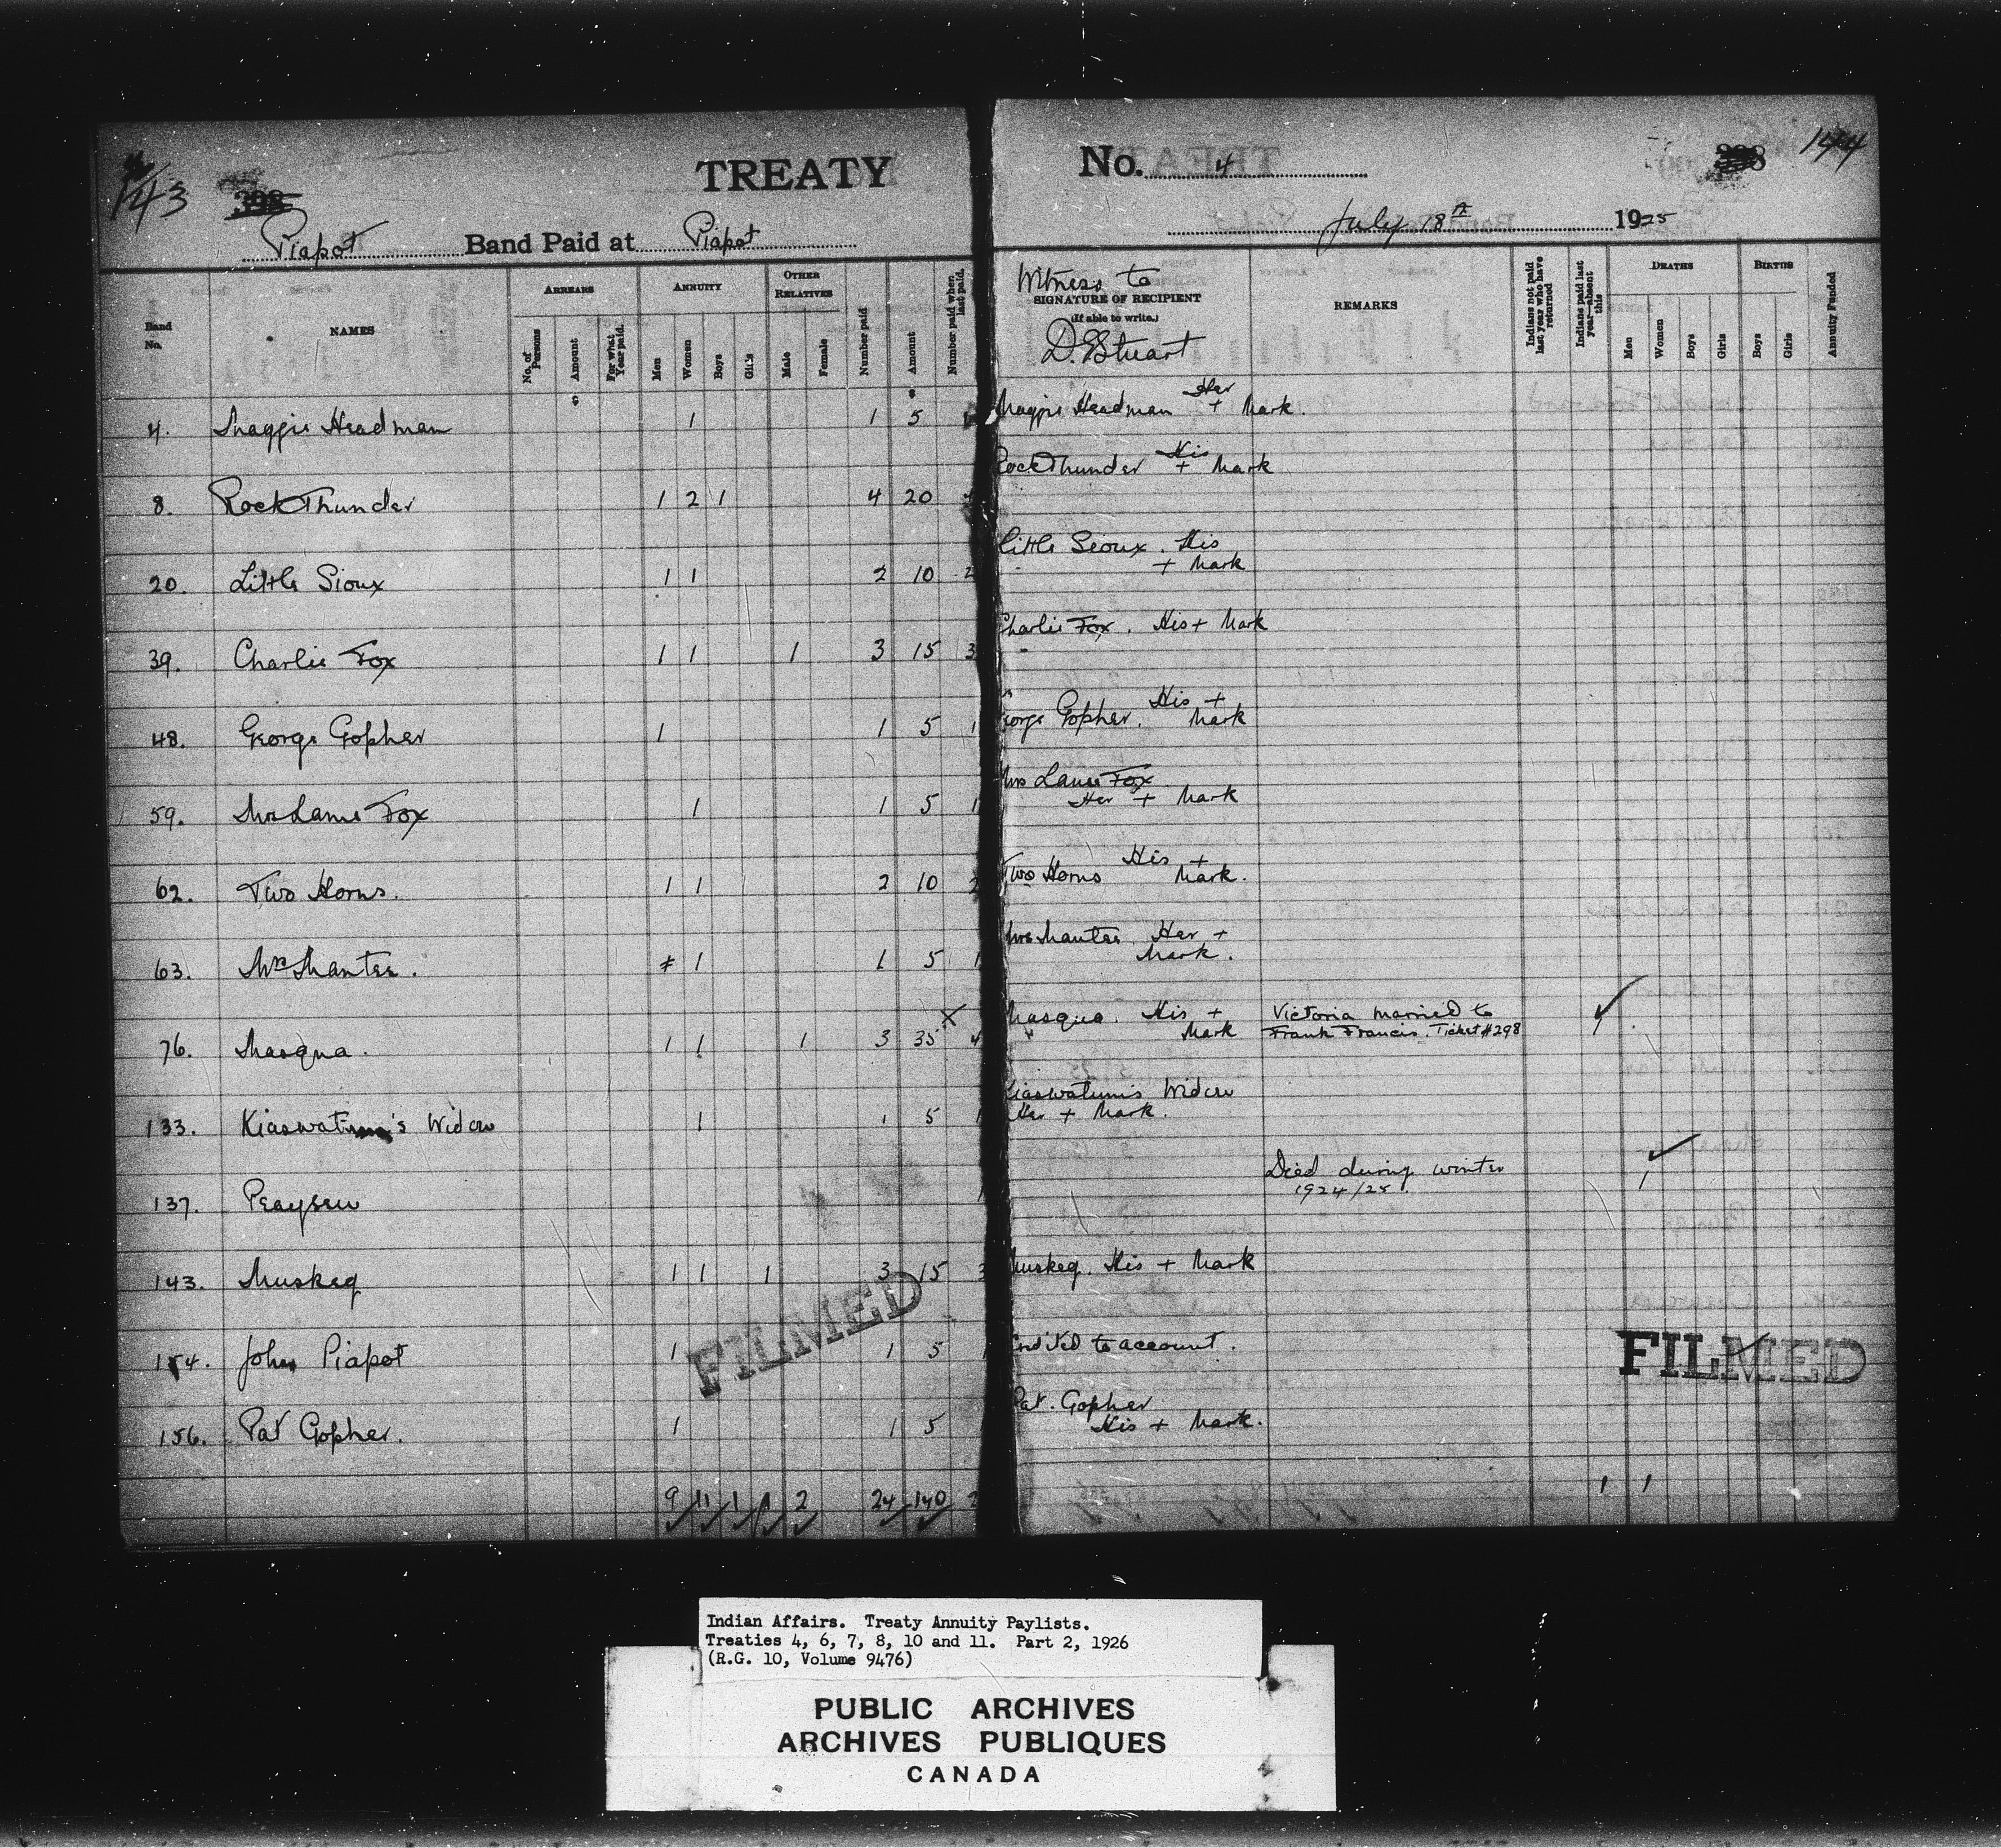 143
398
TREATY
Piapot Band Paid at Piapot
No. 4
398
144
July 18th 1925
Band No.
NAMES
ARREARS
No. of Persons
Amount
For what Year paid.
ANNUITY
Men
Women
Boys
Girls
OTHER RELATIVES
Male
Female
Number paid
Amount
Number paid when last paid.
Witness to
SIGNATURE OF RECIPIENT
(If able to write.)
D. Stuart
REMARKS
Indians not paid last year who have returned
Indians paid last year—absent this
DEATHS
Men
Women
Boys
Girls
BIRTHS
Boys
Girls
Annuity Funded
4. Maggie Headman 1 1 5 Maggie Headman Her + Mark.
8. Rock Thunder 1 2 1 4 20 Rock Thunder His + Mark
20. Little Sioux 1 1 2 10 2 Little Sioux. His + Mark
39. Charlie Fox 1 1 1 3 15 3 Charlie Fox. His + Mark
48. George Gopher 1 1 5 1 George Gopher. His + Mark
59. Mrs Lame Fox 1 1 5 1 Mrs Lame Fox Her + Mark
62. Two Horns. 1 1 2 10 2 Two Horns His + Mark.
63. Mrs Mantee. 1 1 5 1 Mrs Mantee Her + Mark.
76. Masqua. 1 1 1 3 35 X 4 Masqua. His + Mark Victoria married to Frank Francis. Ticket #298 1
133. Kiaswatum's Widow 1 1 5 1 Kiaswatum's Widow Her + Mark.
137. Peaysew 1 Died during winter 1924/25. 1
143. Muskeg 1 1 1 3 15 3 Muskeg. His + Mark
154. John Piapot 1 1 5 1 Credited to account.
156. Pat Gopher. 1 1 5 Pat. Gopher His + Mark.
9 11 1 1 2 24 140 2 1 1
FILMED
FILMED
Indian Affairs. Treaty Annuity Paylists.
Treaties 4, 6, 7, 8, 10 and 11. Part 2, 1926
(R.G. 10, Volume 9476)
PUBLIC ARCHIVES
ARCHIVES PUBLIQUES
CANADA